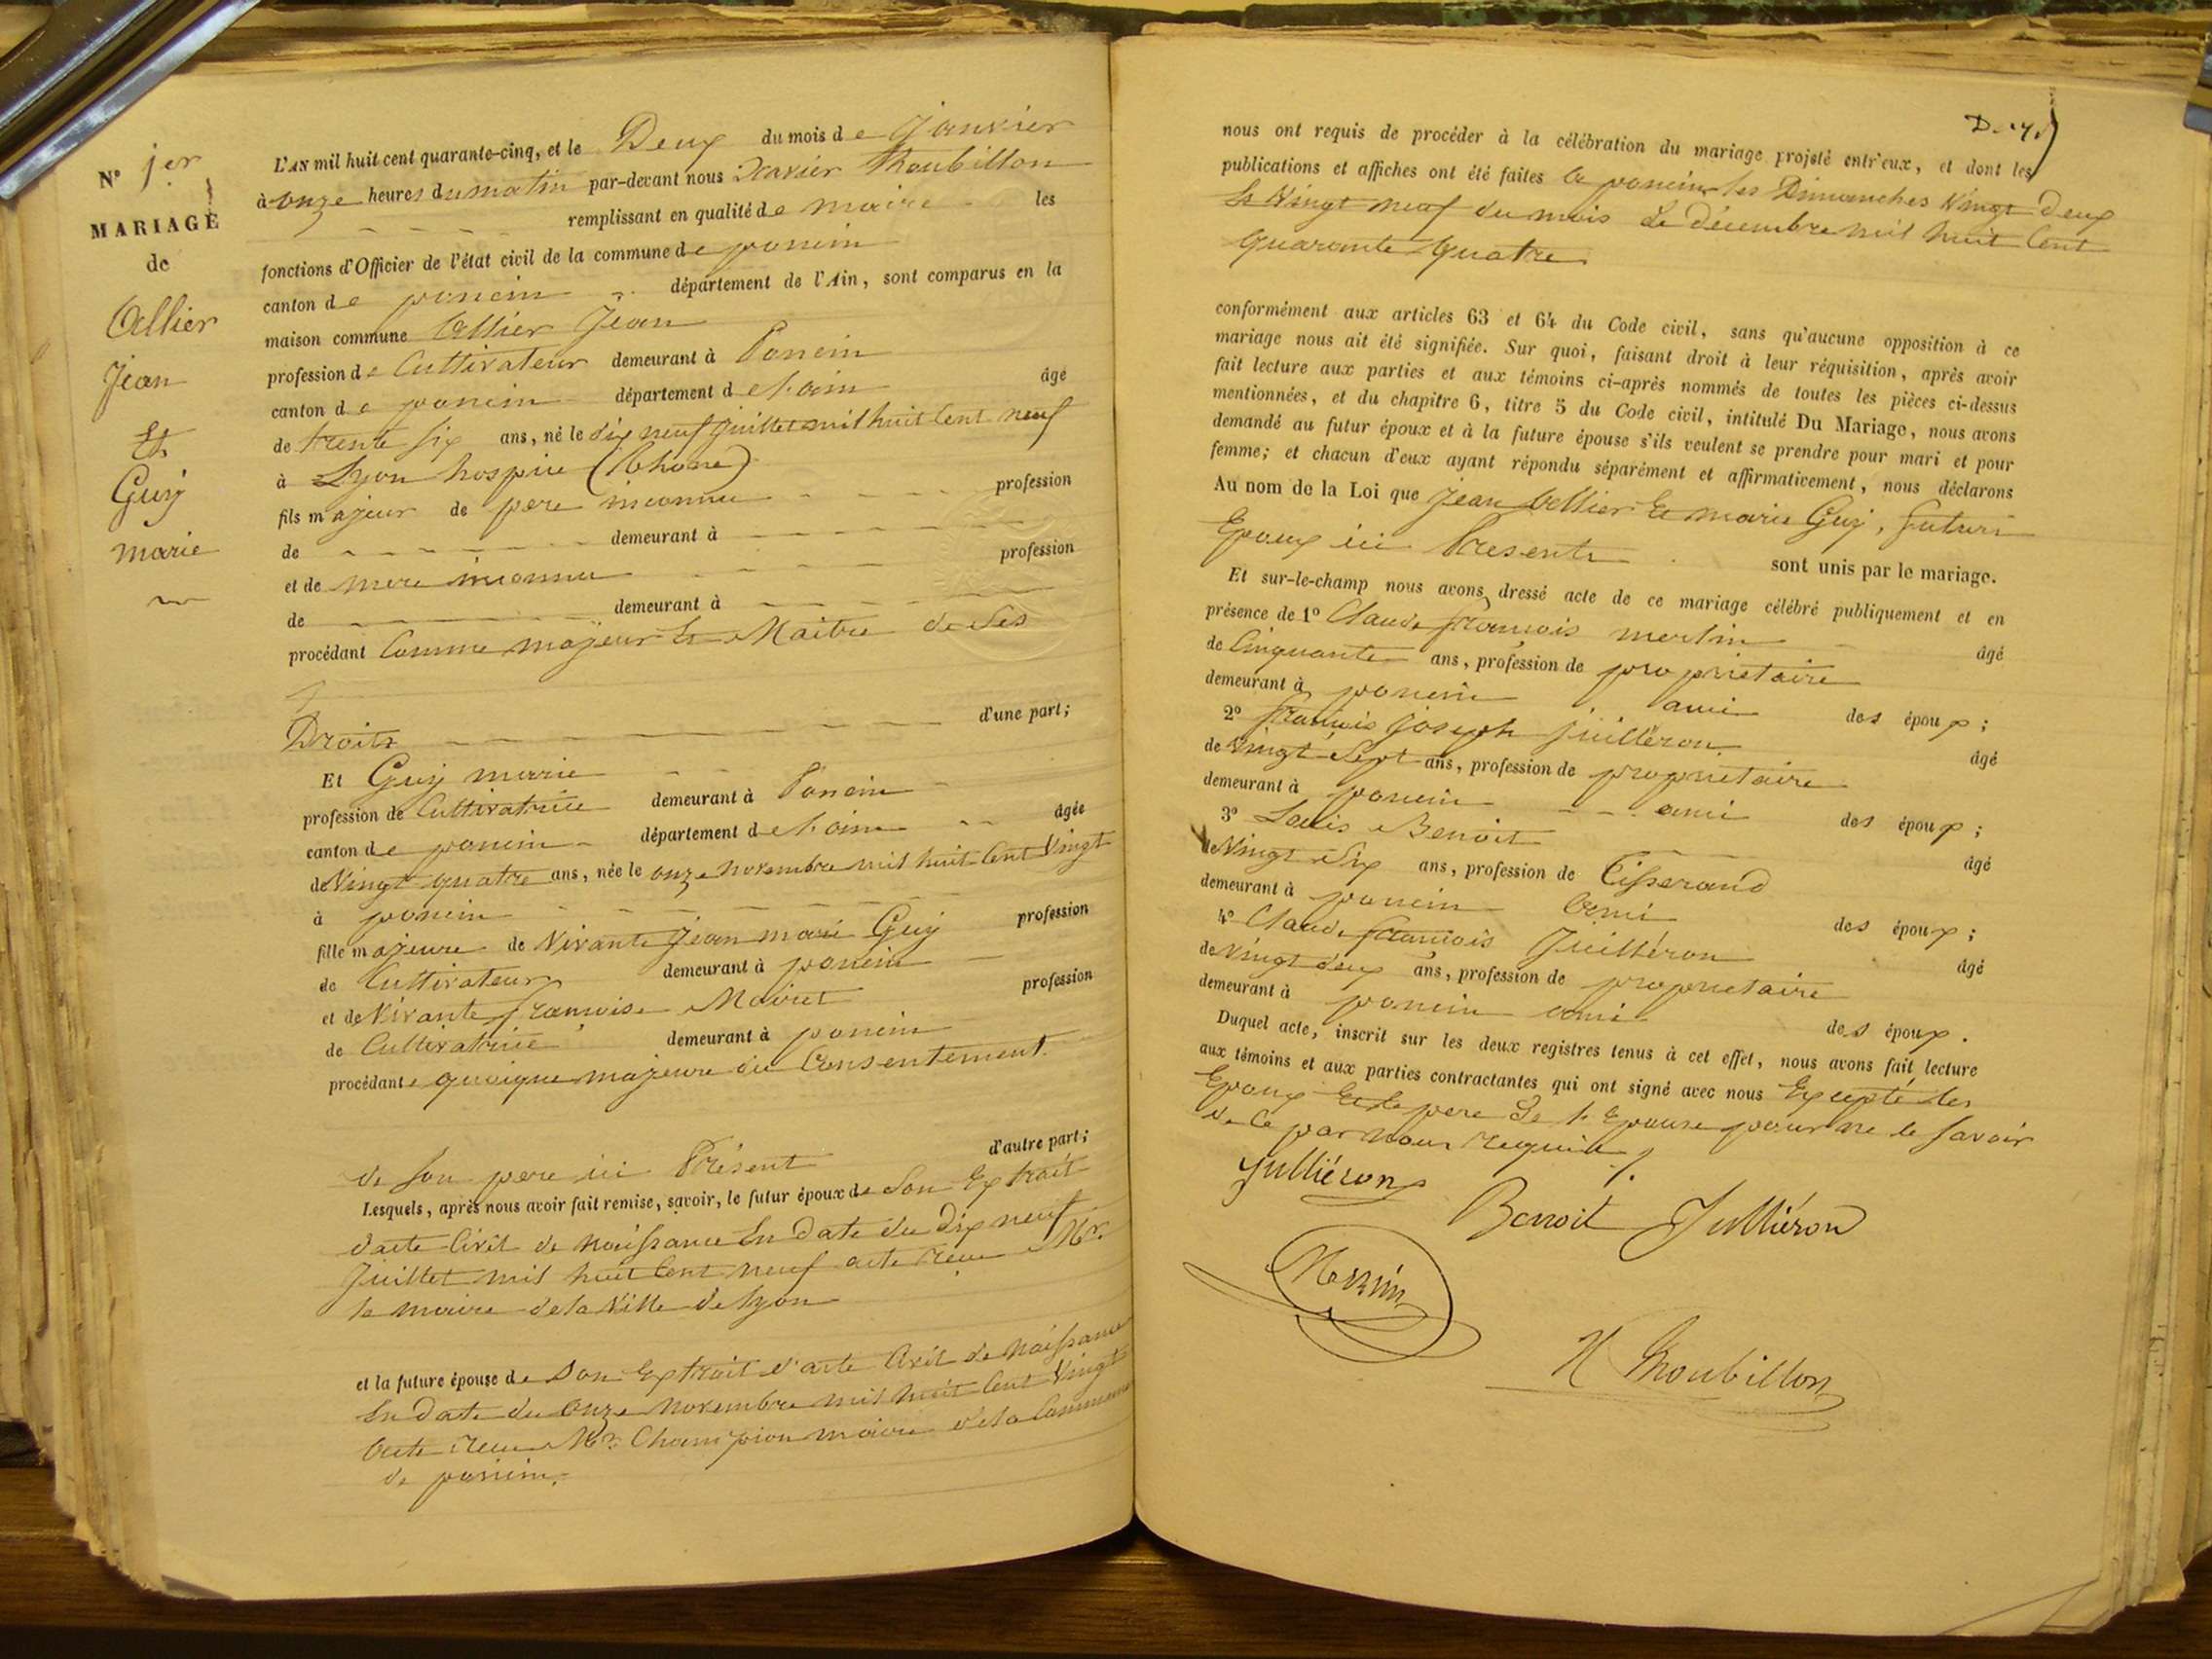 N° 1er
MARIAGE
de
Allier
Jean
Et
Guy
marie
L'AN mil huit cent quarante-cinq, et le Deux du mois de Janvier
à onze heures du matin par-devant nous Xavier Thoubillon
remplissant en qualité de maire les
fonctions d'Officier de l'état civil de la commune de poncin
canton de poncin département de l'Ain, sont comparus en la
maison commune Allier Jean
profession de Cultivateur demeurant à Poncin
canton de poncin département de l'ain âgé
de trente six ans, né le dix neuf juillet mil huit Cent neuf
à Lyon hospice (Rhone)
fils majeur de pere inconnu profession
de demeurant à
et de mere inconnue profession
de demeurant à
procédant Comme majeur et Maitre de Ses
Droits d'une part;
Et Guy marie
profession de Cultivatrice demeurant à Poncin
canton de poncin département de l'ain âgée
de Vingt quatre ans, née le onze novembre mil huit Cent Vingt
à poncin
fille majeure de Vivants Jean marie Guy profession
de Cultivateur demeurant à poncin
et de Vivante françoise Mairet profession
de Cultivatrice demeurant à poncin
procédante quoique majeure du Consentement
de son pere ici Présent d'autre part;
Lesquels, après nous avoir fait remise, savoir, le futur époux de Son Extrait
d'acte Civil de naissance En date du Dix neuf
Juillet mil huit Cent neuf acte reçu Mr.
le maire de la Ville de lyon
et la future épouse de Son Extrait d'acte Civil de naissance
En date du Onze novembre mil huit Cent Vingt
Acte reçu Mr. Champion maire de la Commune
de poncin.
nous ont requis de procéder à la célébration du mariage projeté entr'eux, et dont les
publications et affiches ont été faites a poncin les Dimanches Vingt Deux
Et Vingt neuf du mois de décembre mil huit Cent
quarante quatre
conformément aux articles 63 et 64 du Code civil, sans qu'aucune opposition à ce
mariage nous ait été signifiée. Sur quoi, faisant droit à leur réquisition, après avoir
fait lecture aux parties et aux témoins ci-après nommés de toutes les pièces ci-dessus
mentionnées, et du chapitre 6, titre 5 du Code civil, intitulé Du Mariage, nous avons
demandé au futur époux et à la future épouse s'ils veulent se prendre pour mari et pour
femme; et chacun d'eux ayant répondu séparément et affirmativement, nous déclarons
Au nom de la Loi que Jean Allier Et marie Guy, futurs
Epoux ici Presents sont unis par le mariage.
Et sur-le-champ nous avons dressé acte de ce mariage célébré publiquement et en
présence de 1° Claude françois merlin âgé
de Cinquante ans, profession de proprietaire
demeurant à poncin ami des époux;
2° françois joseph juilleron âgé
de Vingt Sept ans, profession de proprietaire
demeurant à poncin ami des époux;
3° Louis Benoit âgé
de Vingt Six ans, profession de Tisserand
demeurant à poncin Ami des époux;
4° Claude françois Juilléron âgé
de Vingt deux ans, profession de proprietaire
demeurant à poncin ami des époux.
Duquel acte, inscrit sur les deux registres tenus à cet effet, nous avons fait lecture
aux témoins et aux parties contractantes qui ont signé avec nous Excepté les
Epoux Et le pere De l'Epouse pour ne le Savoir
de Ce par nous requis
Julliéron
Benoit Julliéron
X Thoubillon